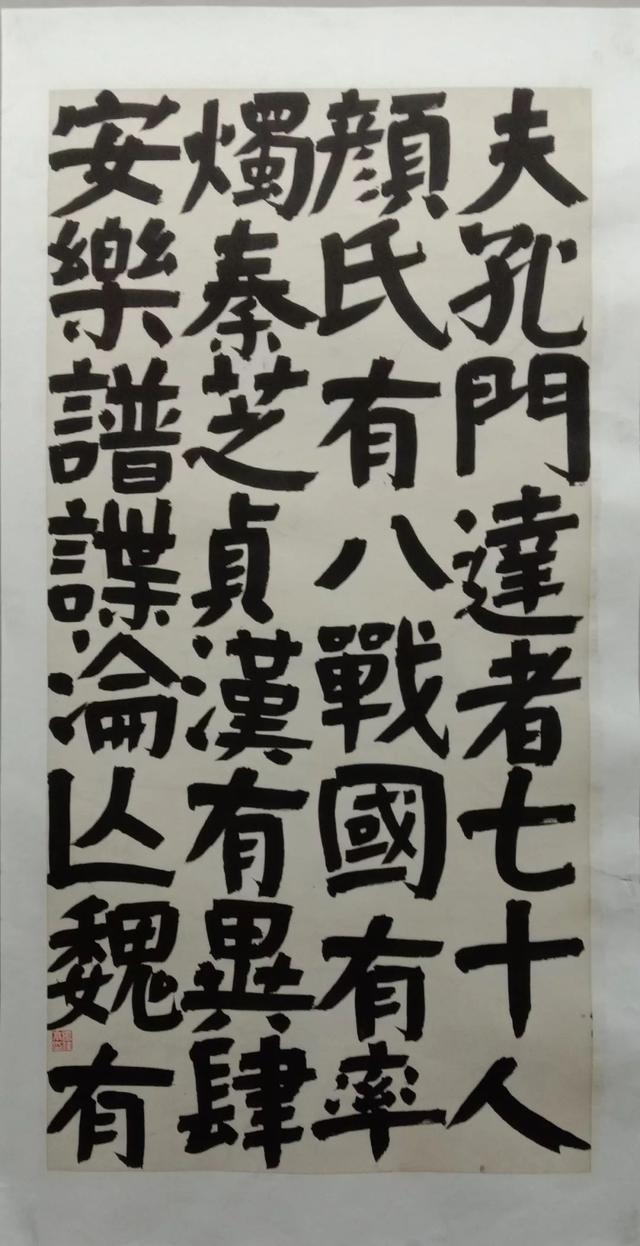 夫孔門達者七十人
顔氏有八戰國有率
燭秦芝貞漢有異肆
安樂譜諜淪亾魏有